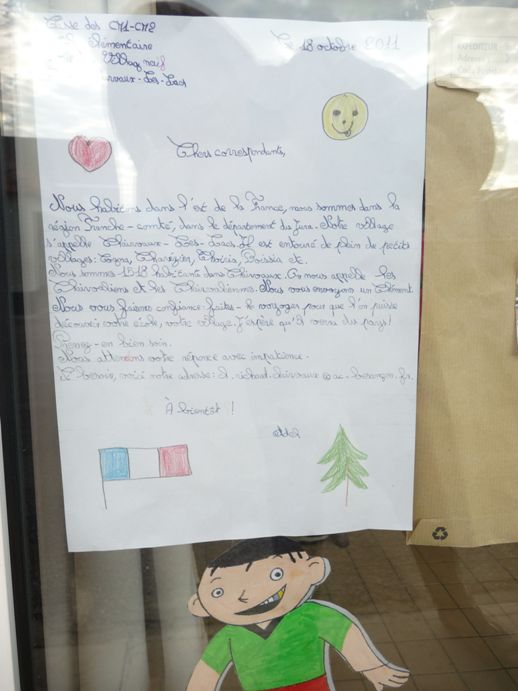 Classe des CM1-CM2
Élémentaire
Village neuf
Clairvaux-Les-Lacs
Le 18 octobre 2011
Chers correspondants,
Nous habitons dans l'est de la France, nous sommes dans la
région Franche-comté, dans le département du Jura. Notre village
s'appelle Clairvaux-Les-Lacs. Il est entouré de plein de petits
villages: Cogna, Charézier, Thoiria, Boissia etc.
Nous sommes 1518 habitants dans Clairvaux. On nous appelle les
Clairvaliens et les Clairvaliennes. Nous vous envoyons un Clément.
Nous vous faisons confiance faites-le voyager pour que l'on puisse
découvrir votre école, votre village. J'espère qu'il verra du pays!
Prenez-en bien soin.
Nous attendons votre réponse avec impatience.
Si besoin, voici notre adresse: richard.clairvaux@ac-besançon.fr.
À bientôt !
EXPEDITEUR
Adresse